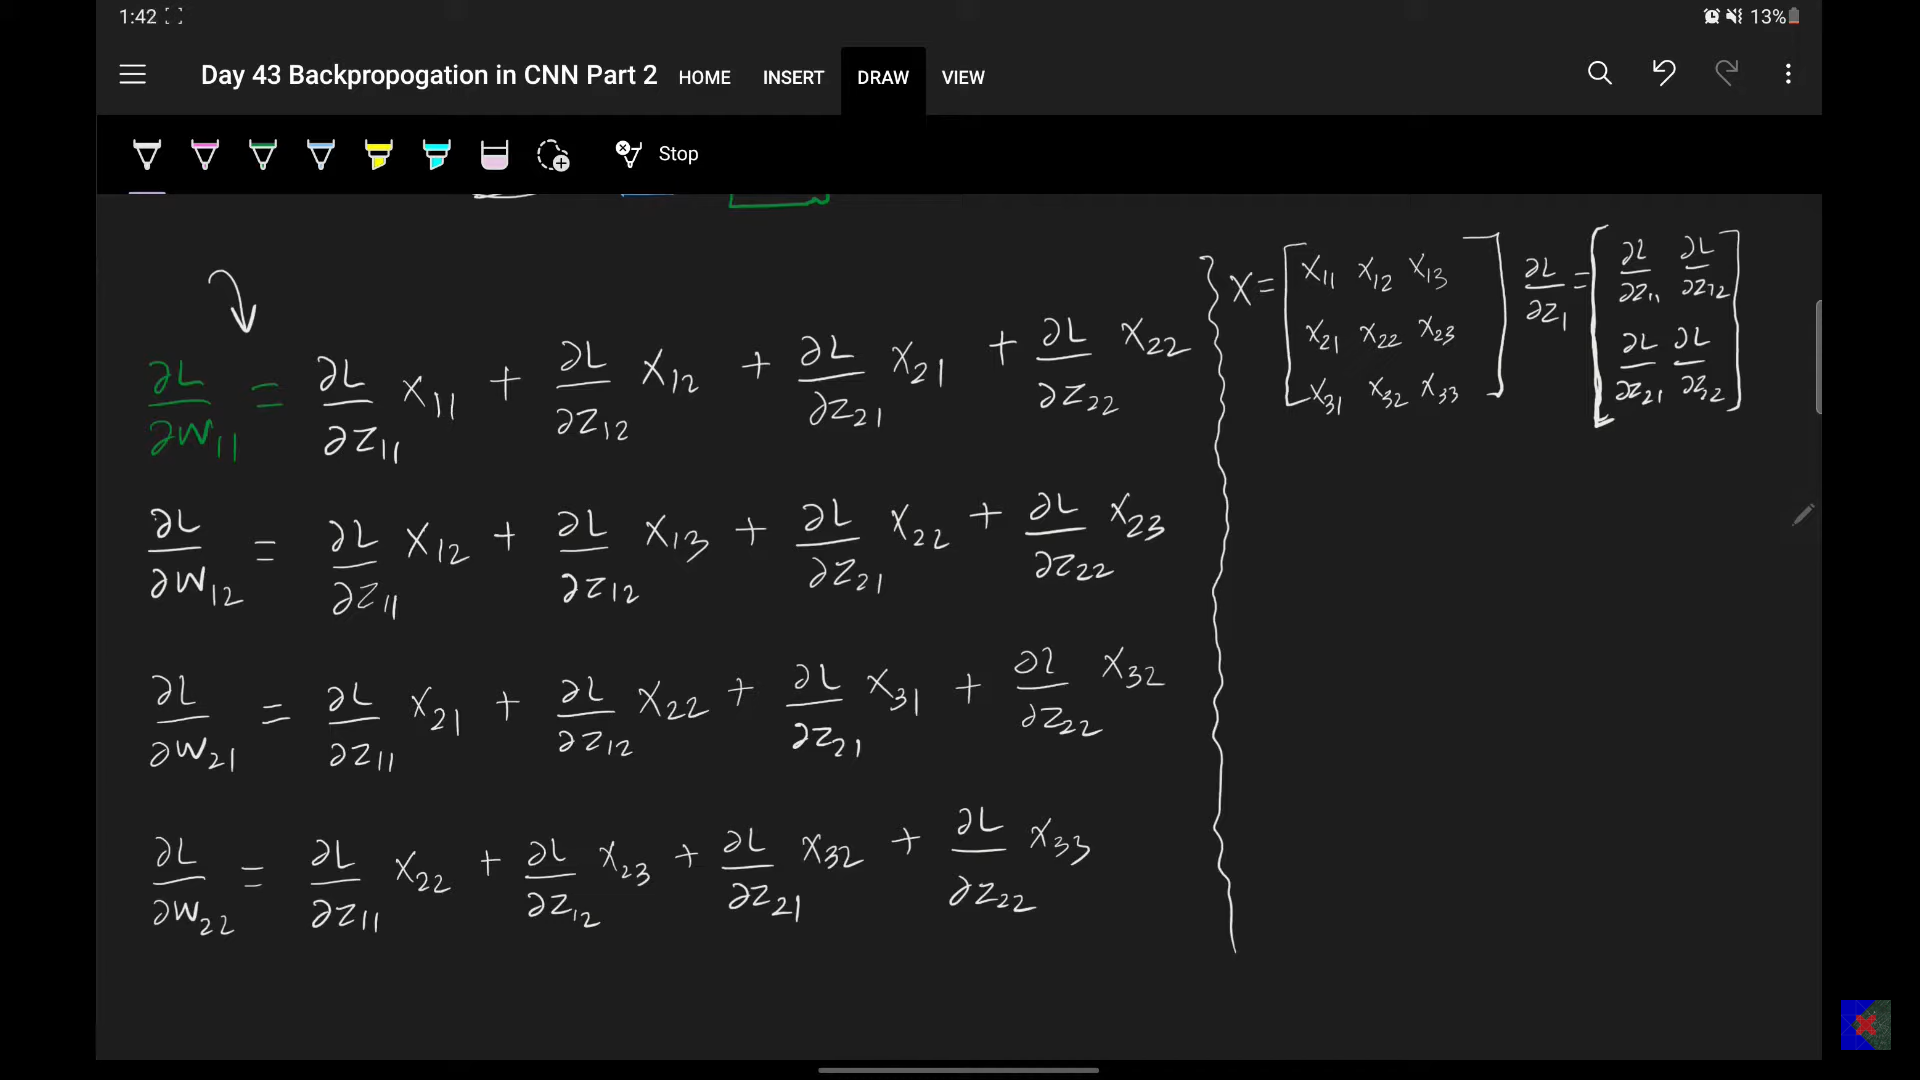 1:42 13%
Day 43 Backpropogation in CNN Part 2 HOME INSERT DRAW VIEW
Stop
∂L/∂W11 = ∂L/∂Z11 X11 + ∂L/∂Z12 X12 + ∂L/∂Z21 X21 + ∂L/∂Z22 X22
∂L/∂W12 = ∂L/∂Z11 X12 + ∂L/∂Z12 X13 + ∂L/∂Z21 X22 + ∂L/∂Z22 X23
∂L/∂W21 = ∂L/∂Z11 X21 + ∂L/∂Z12 X22 + ∂L/∂Z21 X31 + ∂L/∂Z22 X32
∂L/∂W22 = ∂L/∂Z11 X22 + ∂L/∂Z12 X23 + ∂L/∂Z21 X32 + ∂L/∂Z22 X33
X = [ X11 X12 X13
X21 X22 X23
X31 X32 X33 ]
∂L/∂Z1 = [ ∂L/∂Z11 ∂L/∂Z12
∂L/∂Z21 ∂L/∂Z22 ]